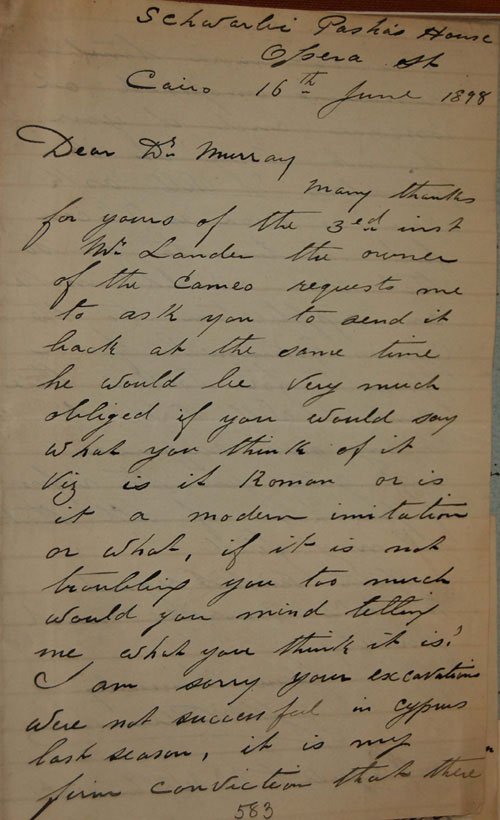 Schwarbi Pasha's House
Opera St
Cairo 16th June 1898
Dear Dr Murray
Many thanks
for yours of the 3rd inst
Mr Lander the owner
of the Cameo requests me
to ask you to send it
back at the same time
he would be very much
obliged if you would say
what you think of it
Viz is it Roman or is
it a modern imitation
or what, if it is not
troubling you too much
would you mind telling
me what you think it is?
I am sorry your excavations
were not successful in Cyprus
last season, it is my
firm conviction that there
583